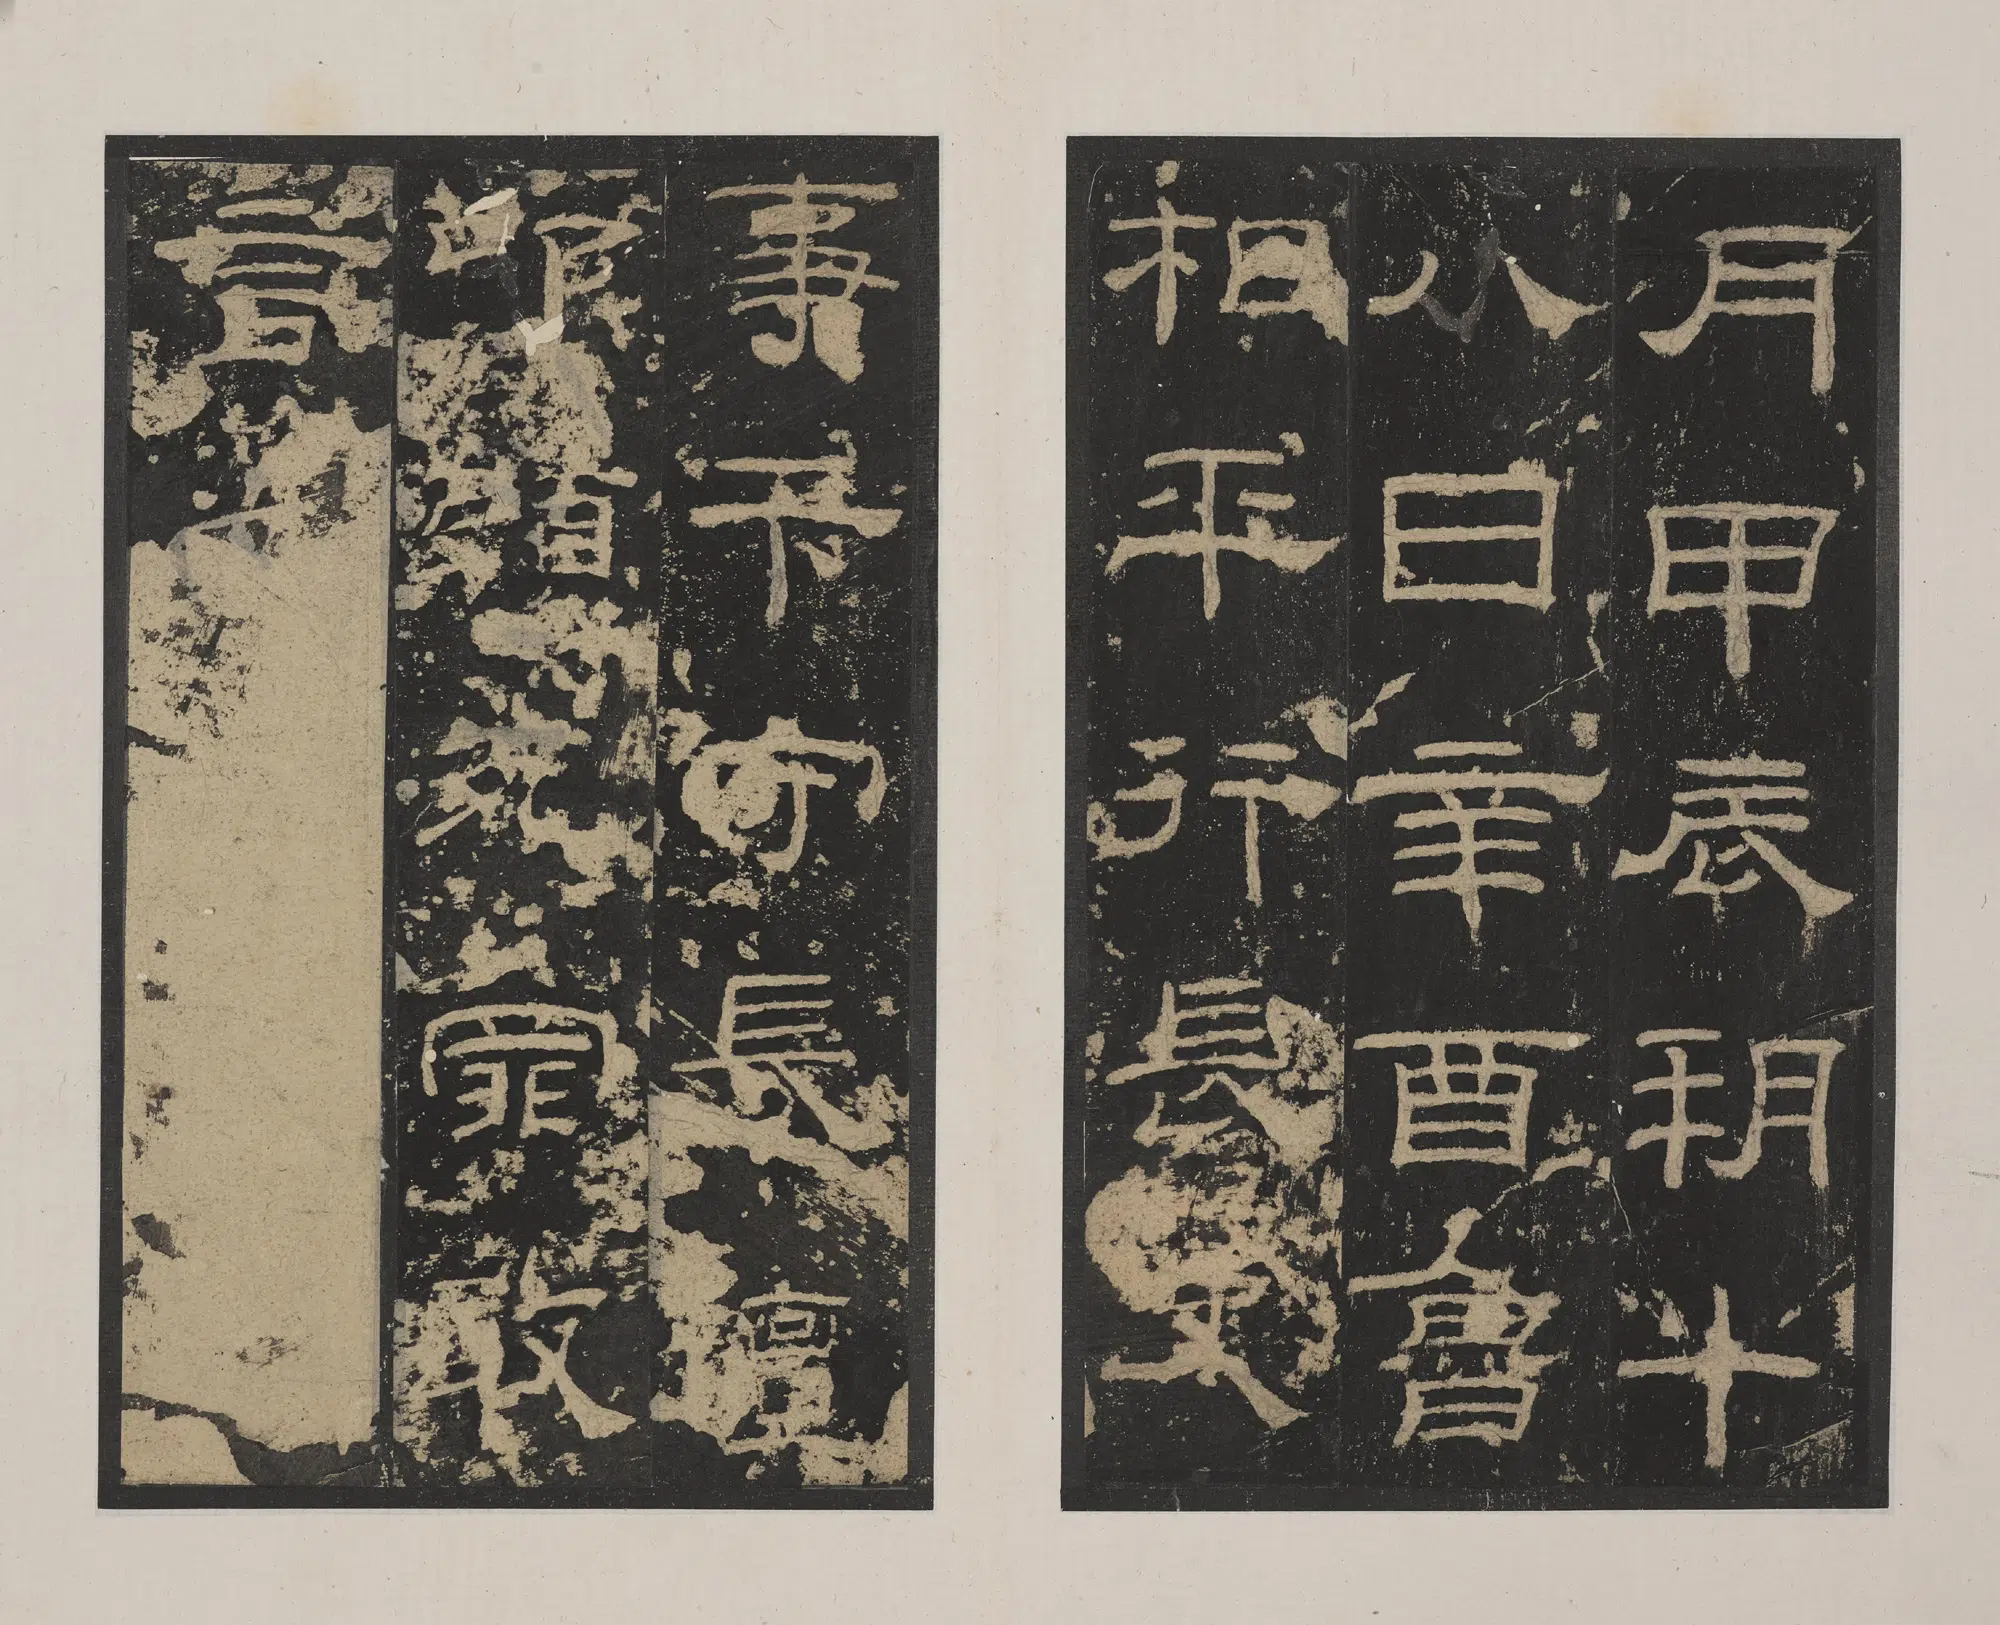 月甲辰朔十
八日辛酉魯
相平行長史
事卞守長擅
叩頭死罪敢
言